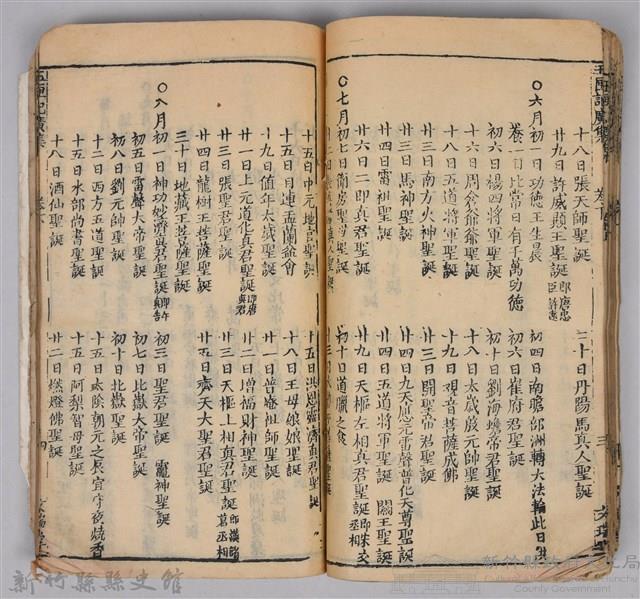 玉匣記廣集
十八日張天師聖誕
二十日丹陽馬真人聖誕
廿九日許威顯王聖誕即唐忠臣許遠
〇六月初一日功德王生辰
初四日南瞻部洲轉大法輪此日供
養一日比當日有千萬功德
初六日崔府君聖誕
初六日楊四將軍聖誕
初十日劉海蟾帝君聖誕
十六日周爺爺聖誕
十八日太歲殿元帥聖誕
十八日五道將軍聖誕
十九日觀音菩薩成佛
廿三日南方火神聖誕
廿三日關聖帝君聖誕
廿三日馬神聖誕
廿四日九天應元雷聲普化天尊聖誕
廿四日雷祖聖誕
廿四日五道將軍聖誕 閻王聖誕
廿六日二郎真君聖誕
廿九日天樞左相真君聖誕
〇七月初七日
初十日道臘之辰
十五日中元地官聖誕
十五日
十五日目連盂蘭盆會
十八日王母娘娘聖誕
十九日值年太歲聖誕
廿一日普庵祖師聖誕
廿一日上元道化真君聖誕即唐真君
廿二日增福財神聖誕
廿三日張聖君聖誕
廿三日天樞上相真君聖誕即漢諸葛丞相
廿四日龍樹王菩薩聖誕
廿五日齊天大聖君聖誕
三十日地藏王菩薩聖誕
〇八月初一日神功妙濟真君聖誕
初三日聖君聖誕 竈神聖誕
初五日雷聲大帝聖誕
初七日北嶽大帝聖誕
初八日劉元帥聖誕
初十日北嶽聖誕
十二日西方五道聖誕
十五日太陰朝元之辰宜守夜焚香
十五日水部尚書聖誕
十五日阿梨智母聖誕
十八日酒仙聖誕
廿二日燃燈佛聖誕
玉匣記廣集
新竹縣縣史館
County Government